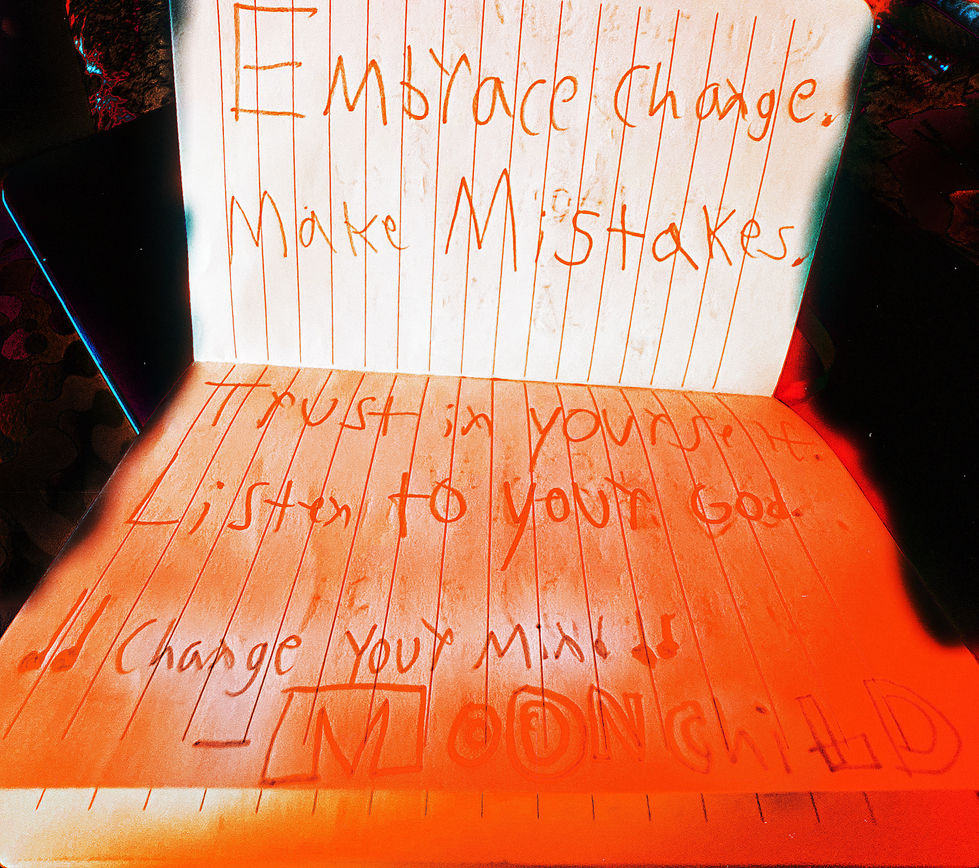 Embrace Change.
Make Mistakes.
Trust in yourself.
Listen to your God.
♫ Change your Mind ♪
— MOONChiLD